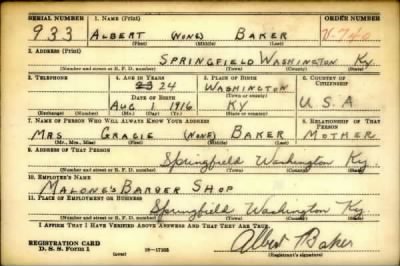 SERIAL NUMBER 1. NAME (Print) ORDER NUMBER
933 ALBERT (NONE) BAKER V-740
(First) (Middle) (Last)
2. ADDRESS (Print)
SPRINGFIELD WASHINGTON KY
(Number and street or R. F. D. number) (Town) (County) (State)
3. TELEPHONE 4. AGE IN YEARS 5. PLACE OF BIRTH 6. COUNTRY OF CITIZENSHIP
23 24 WASHINGTON
DATE OF BIRTH (Town or county)
AUG 1 1916 KY U.S.A
(Mo.) (Day) (Yr.) (State or country)
7. NAME OF PERSON WHO WILL ALWAYS KNOW YOUR ADDRESS 8. RELATIONSHIP OF THAT PERSON
MRS GRACIE (NONE) BAKER MOTHER
(Mr., Mrs., Miss) (First) (Middle) (Last)
9. ADDRESS OF THAT PERSON
Springfield Washington Ky
(Number and street or R. F. D. number) (Town) (County) (State)
10. EMPLOYER'S NAME
MALONE'S BARBER SHOP
11. PLACE OF EMPLOYMENT OR BUSINESS
Springfield Washington Ky
(Number and street or R. F. D. number) (Town) (County) (State)
I AFFIRM THAT I HAVE VERIFIED ABOVE ANSWERS AND THAT THEY ARE TRUE.
REGISTRATION CARD Albert Baker
D. S. S. Form 1 (over) 16-17105 (Registrant's signature)